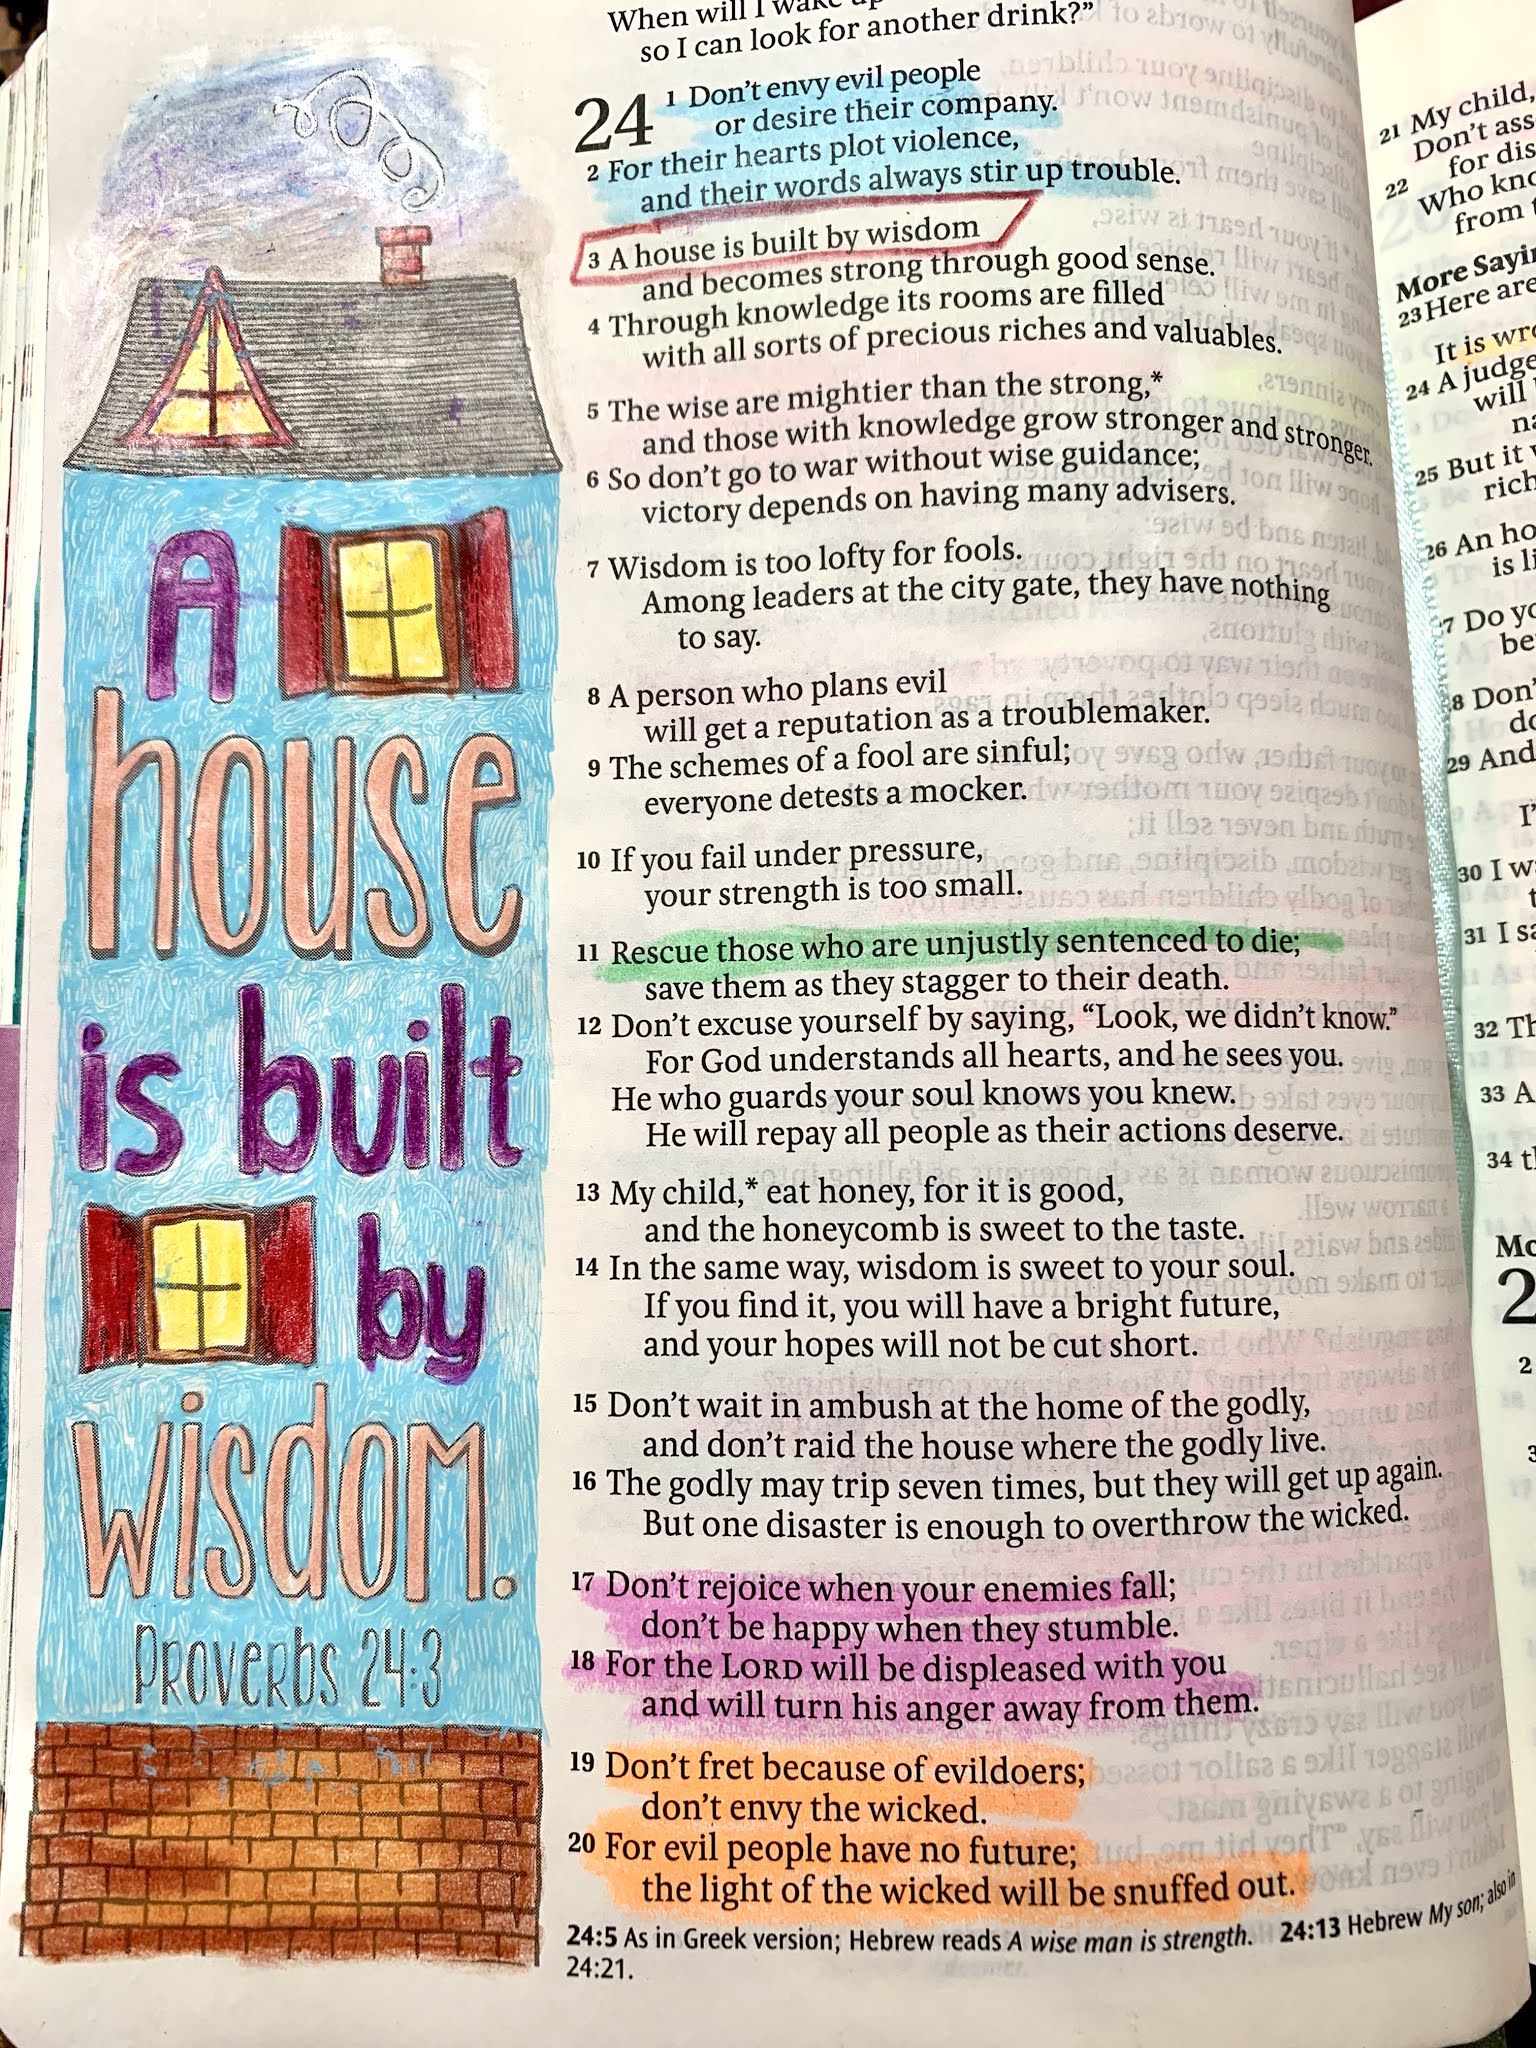 A
house
is built
by
wisdom.
Proverbs 24:3
When will I wake up
so I can look for another drink?”
24
1 Don’t envy evil people
or desire their company.
2 For their hearts plot violence,
and their words always stir up trouble.
3 A house is built by wisdom
and becomes strong through good sense.
4 Through knowledge its rooms are filled
with all sorts of precious riches and valuables.
5 The wise are mightier than the strong,*
and those with knowledge grow stronger and stronger.
6 So don’t go to war without wise guidance;
victory depends on having many advisers.
7 Wisdom is too lofty for fools.
Among leaders at the city gate, they have nothing
to say.
8 A person who plans evil
will get a reputation as a troublemaker.
9 The schemes of a fool are sinful;
everyone detests a mocker.
10 If you fail under pressure,
your strength is too small.
11 Rescue those who are unjustly sentenced to die;
save them as they stagger to their death.
12 Don’t excuse yourself by saying, “Look, we didn’t know.”
For God understands all hearts, and he sees you.
He who guards your soul knows you knew.
He will repay all people as their actions deserve.
13 My child,* eat honey, for it is good,
and the honeycomb is sweet to the taste.
14 In the same way, wisdom is sweet to your soul.
If you find it, you will have a bright future,
and your hopes will not be cut short.
15 Don’t wait in ambush at the home of the godly,
and don’t raid the house where the godly live.
16 The godly may trip seven times, but they will get up again.
But one disaster is enough to overthrow the wicked.
17 Don’t rejoice when your enemies fall;
don’t be happy when they stumble.
18 For the LORD will be displeased with you
and will turn his anger away from them.
19 Don’t fret because of evildoers;
don’t envy the wicked.
20 For evil people have no future;
the light of the wicked will be snuffed out.
24:5 As in Greek version; Hebrew reads A wise man is strength. 24:13 Hebrew My son; also in
24:21.
21 My child,
Don’t
for
22
Who
from
More
23 Here are
It is
24 A judge
will
25 But it
26 An
is
Do
be
Don’t
29 And
30 I
31 I
32
33 A
34
2